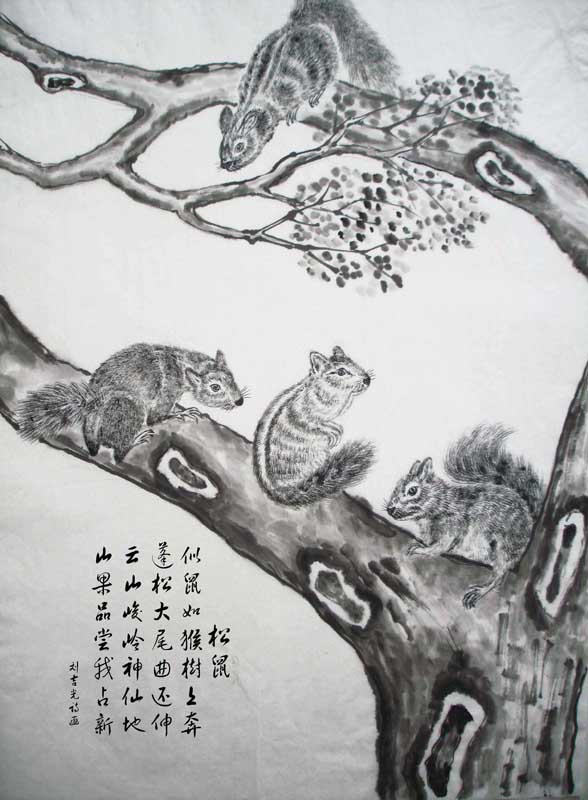 松鼠
似鼠如猴樹上奔
蓬松大尾曲还伸
云山峻岭神仙地
山果品尝我占新
刘吉光诗画